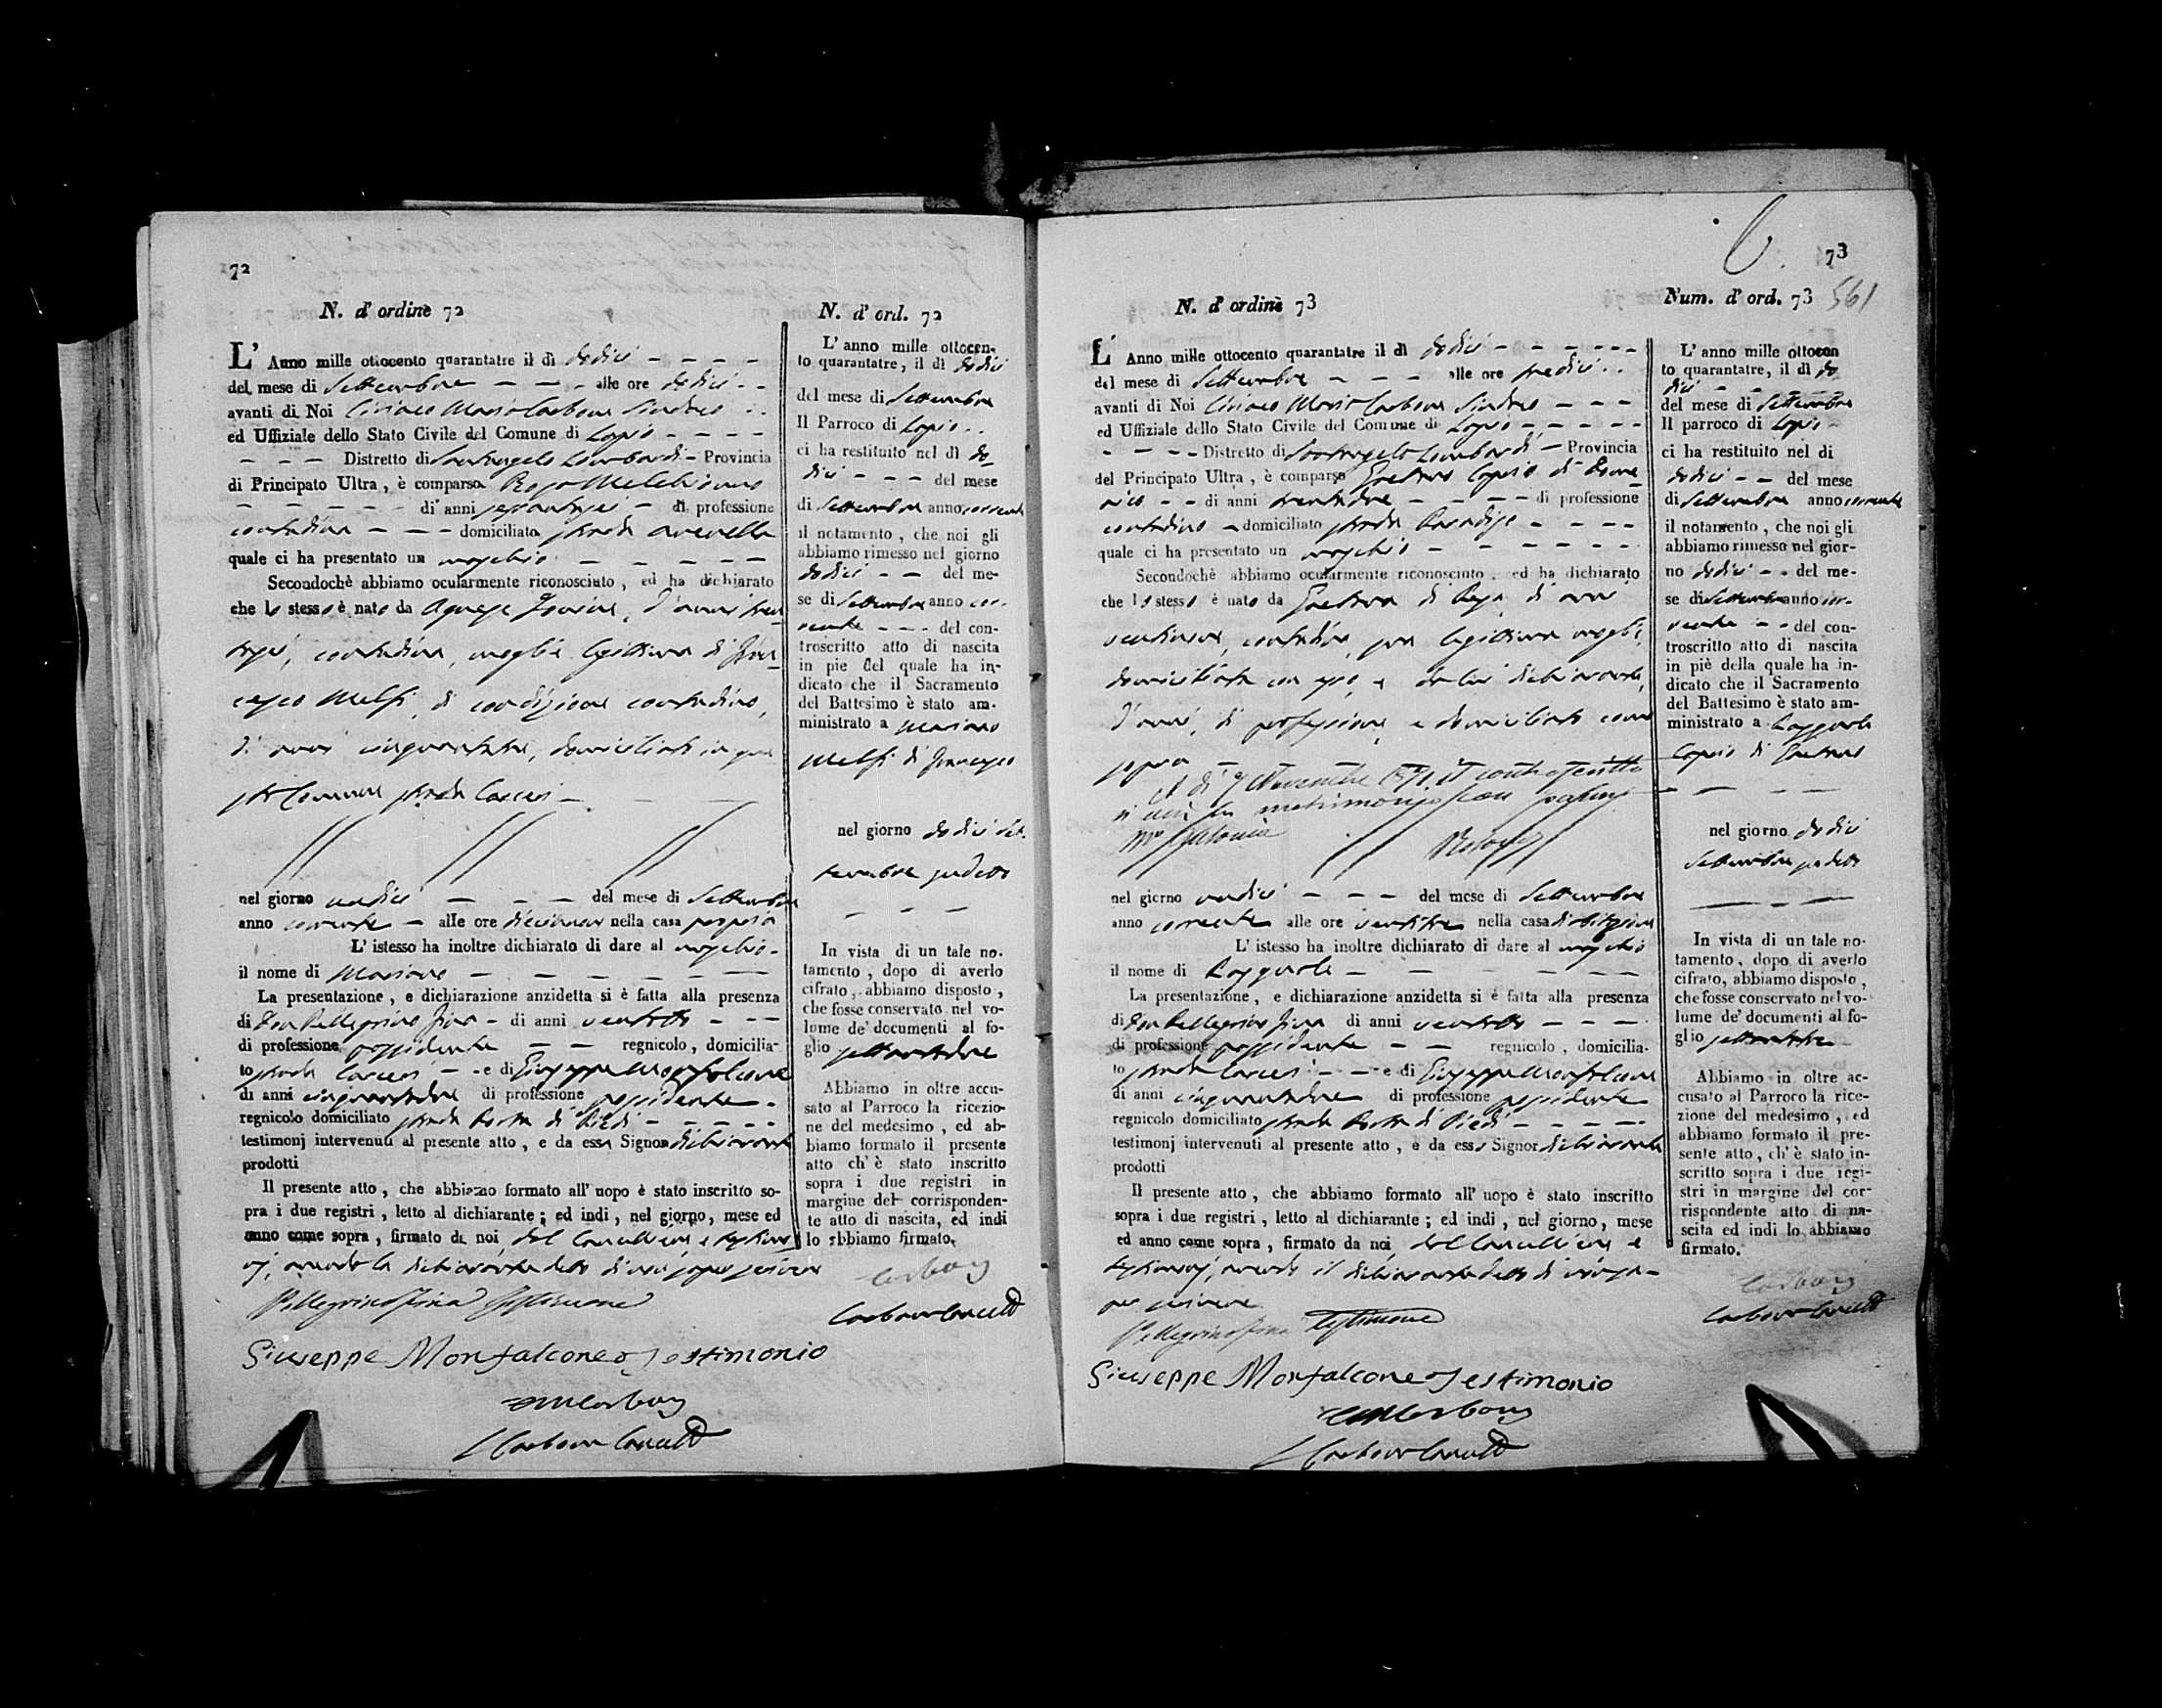 72
N. d' ordine 72
L' Anno mille ottocento quarantatre il dì dodici
del mese di Settembre alle ore dodici
avanti di Noi Ciriaco Maria Carbone Sindaco
ed Uffiziale dello Stato Civile del Comune di Lapio
Distretto di Santangelo Lombardi Provincia
di Principato Ultra, è comparsa Rosa
di anni di professione
contadina domiciliata strada
quale ci ha presentato un maschio
Secondochè abbiamo ocularmente riconosciuto, ed ha dichiarato
che lo stesso è nato da Agnese d'anni tren
contadina, moglie legittima di Fran
cesco Melfi, di condizione contadino,
di anni domiciliato in que
sto Comune strada Carceri
nel giorno undici del mese di Settembre
anno corrente alle ore nella casa propria
L' istesso ha inoltre dichiarato di dare al maschio
il nome di Mariano
La presentazione, e dichiarazione anzidetta si è fatta alla presenza
di Don Pellegrino Fina di anni ventotto
di professione possidente regnicolo, domicilia-
to strada Carceri e di Giuseppe Monfalcone
di anni di professione possidente
regnicolo domiciliato strada Porta di Piedi
testimonj intervenuti al presente atto, e da essa Signora dichiarante
prodotti
Il presente atto, che abbiamo formato all' uopo è stato inscritto so-
pra i due registri, letto al dichiarante; ed indi, nel giorno, mese ed
anno come sopra, firmato da noi, dal Cancelliere e testimo
nj, avendo la dichiarante detto di non saper scrivere
Pellegrino Fina Testimone
Giuseppe Monfalcone Testimonio
Carbone
Carbone Cancell
N. d' ord. 72
L' anno mille ottocen-
to quarantatre, il dì dodici
del mese di Settembre
Il Parroco di Lapio
ci ha restituito nel dì do
dici del mese
di Settembre anno corrente
il notamento, che noi gli
abbiamo rimesso nel giorno
dodici del me-
se di Settembre anno cor-
rente del con-
troscritto atto di nascita
in pie del quale ha in-
dicato che il Sacramento
del Battesimo è stato am-
ministrato a Mariano
Melfi di Francesco
nel giorno dodici Set-
tembre sudetto
In vista di un tale no-
tamento, dopo di averlo
cifrato, abbiamo disposto,
che fosse conservato nel vo-
lume de' documenti al fo-
glio settantadue
Abbiamo in oltre accu-
sato al Parroco la ricezio-
ne del medesimo, ed ab-
biamo formato il presente
atto ch' è stato inscritto
sopra i due registri in
margine del corrisponden-
te atto di nascita, ed indi
lo abbiamo firmato.
Carbone
Carbone Cancell
73
561
N. d' ordine 73
L' Anno mille ottocento quarantatre il dì dodici
del mese di Settembre alle ore tredici
avanti di Noi Ciriaco Maria Carbone Sindaco
ed Uffiziale dello Stato Civile del Comune di Lapio
Distretto di Santangelo Lombardi Provincia
del Principato Ultra, è comparso Gaetano Caputo di Dome
nico di anni trentadue di professione
contadino domiciliato strada Paradiso
quale ci ha presentato un maschio
Secondochè abbiamo ocularmente riconosciuto, ed ha dichiarato
che lo stesso è nato da di anni
contadina, sua legittima moglie,
domiciliata con esso, e da lui dichiarante,
d'anni, di professione, e domiciliato come
sopra
A dì 9 Novembre il controscritto
si unì in matrimonio con
nel giorno undici del mese di Settembre
anno corrente alle ore ventitre nella casa di abitazione
L' istesso ha inoltre dichiarato di dare al maschio
il nome di Raffaele
La presentazione, e dichiarazione anzidetta si è fatta alla presenza
di Don Pellegrino Fina di anni ventotto
di professione possidente regnicolo, domicilia-
to strada Carceri e di Giuseppe Monfalcone
di anni di professione possidente
regnicolo domiciliato strada Porta di Piedi
testimonj intervenuti al presente atto, e da esso Signor dichiarante
prodotti
Il presente atto, che abbiamo formato all' uopo è stato inscritto
sopra i due registri, letto al dichiarante; ed indi, nel giorno, mese
ed anno come sopra, firmato da noi, dal Cancelliere e
testimonj, avendo il dichiarante detto di non sa-
per scrivere
Pellegrino Fina Testimone
Giuseppe Monfalcone Testimonio
Carbone
Carbone Cancell
Num. d' ord. 73
L' anno mille ottocen
to quarantatre, il dì do
dici
del mese di Settembre
Il parroco di Lapio
ci ha restituito nel di
dodici del mese
di Settembre anno corrente
il notamento, che noi gli
abbiamo rimesso nel gior-
no dodici del me-
se di Settembre anno cor-
rente del con-
troscritto atto di nascita
in piè della quale ha in-
dicato che il Sacramento
del Battesimo è stato am-
ministrato a Raffaele
Caputo di Gaetano
nel giorno dodici
Settembre sudetto
In vista di un tale no-
tamento, dopo di averlo
cifrato, abbiamo disposto,
che fosse conservato nel vo-
lume de' documenti al fo-
glio settantatre
Abbiamo in oltre ac-
cusato al Parroco la rice-
zione del medesimo, ed
abbiamo formato il pre-
sente atto, ch' è stato in-
scritto sopra i due regi-
stri in margine del cor-
rispondente atto di na-
scita ed indi lo abbiamo
firmato.
Carbone
Carbone Cancell